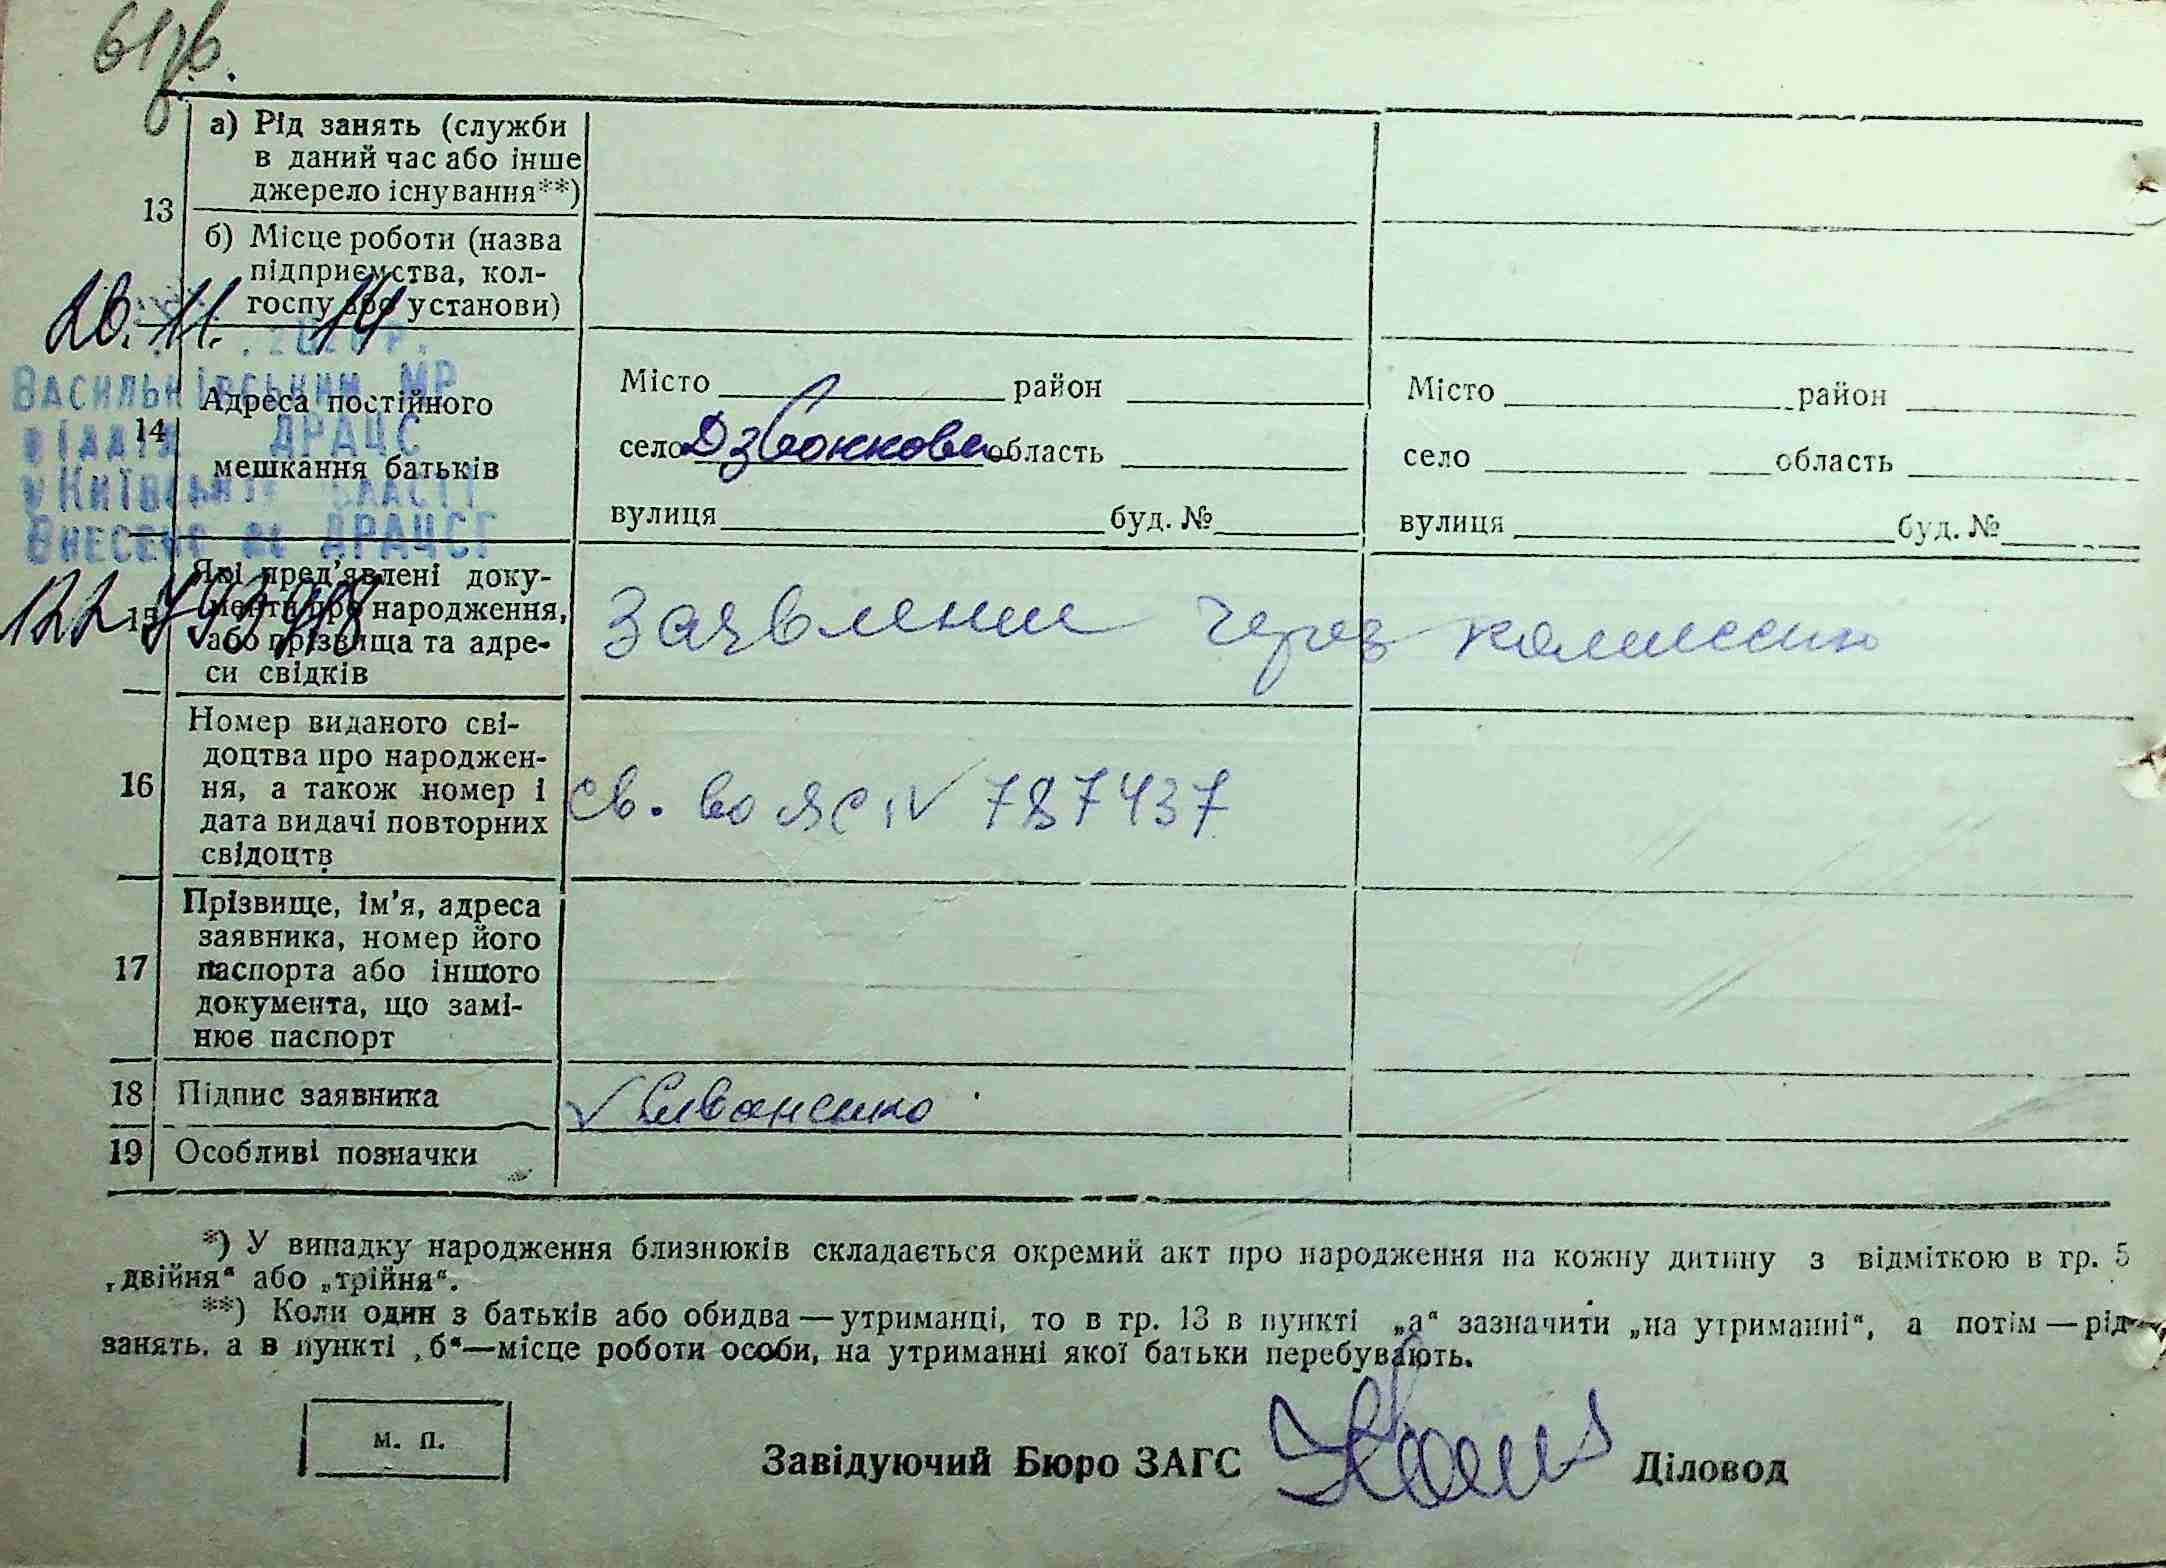 а) Рід занять (служби
в даний час або інше
джерело існування**)
13
б) Місце роботи (назва
підприємства, кол-
госпу або установи)
26.11. 14
Васильківським МР
Місто район
Місто район
Адреса постійного
14
відділ ДРАЦС
село Дзвонкове область
село область
мешкання батьків
у Київській області
вулиця буд. №
вулиця буд. №
Внесено до ДРАЦСГ
15
Які пред'явлені доку-
менти про народження,
або прізвища та адре-
си свідків
Заявление через комиссию
16
Номер виданого сві-
доцтва про народжен-
ня, а також номер і
дата видачі повторних
свідоцтв
св. во ЯС № 787437
17
Прізвище, ім'я, адреса
заявника, номер його
паспорта або іншого
документа, що замі-
нює паспорт
18 Підпис заявника
19 Особливі позначки
*) У випадку народження близнюків складається окремий акт про народження на кожну дитину з відміткою в гр. 5
„двійня“ або „трійня“.
**) Коли один з батьків або обидва — утриманці, то в гр. 13 в пункті „а“ зазначити „на утриманні“, а потім — рід
занять, а в пункті „б“ — місце роботи особи, на утриманні якої батьки перебувають.
м. п.
Завідуючий Бюро ЗАГС Діловод